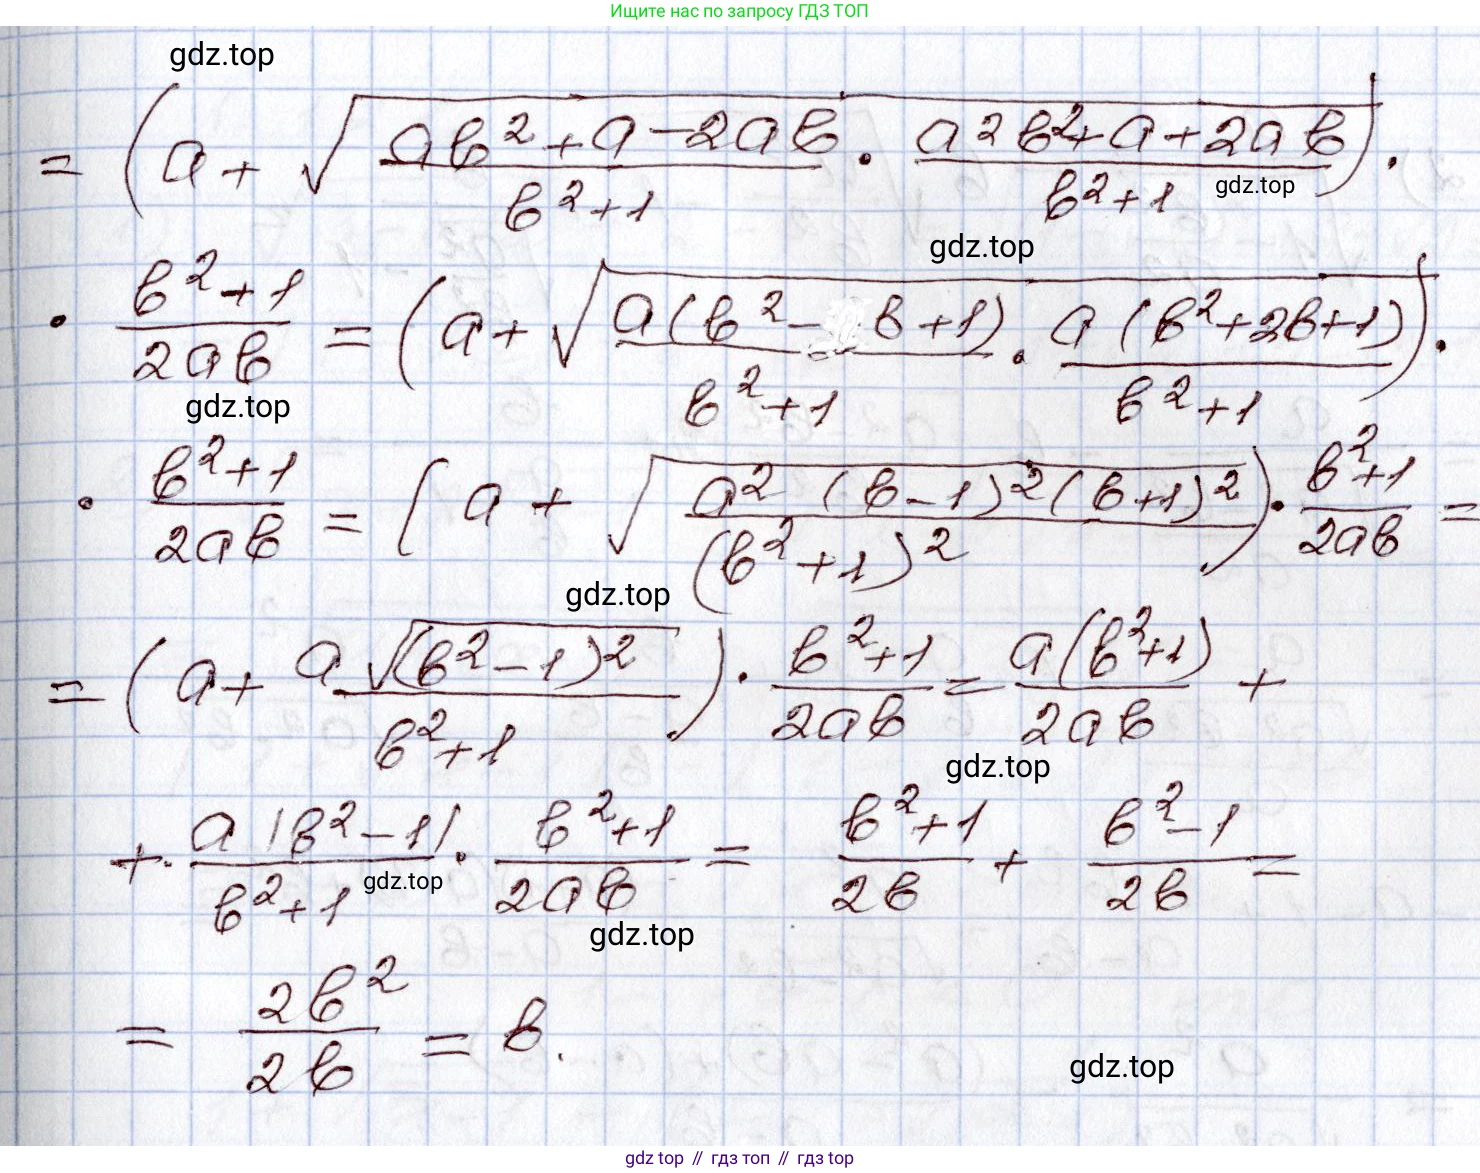 Ищите нас по запросу ГДЗ ТОП
gdz.top
= (a + √(ab² + a − 2ab / b² + 1 · a²b² + a + 2ab / b² + 1)) ·
gdz.top
gdz.top
· b² + 1 / 2ab = (a + √(a(b² − b + 1) / b² + 1 · a(b² + 2b + 1) / b² + 1)) ·
gdz.top
· b² + 1 / 2ab = (a + √(a²(b − 1)²(b + 1)² / (b² + 1)²)) · b² + 1 / 2ab =
gdz.top
= (a + a√(b² − 1)² / b² + 1) · b² + 1 / 2ab = a(b² + 1) / 2ab +
gdz.top
+ · a|b² − 1| / b² + 1 · b² + 1 / 2ab = b² + 1 / 2b + b² − 1 / 2b =
gdz.top
gdz.top
= 2b² / 2b = b.
gdz.top
gdz top // гдз топ // гдз top